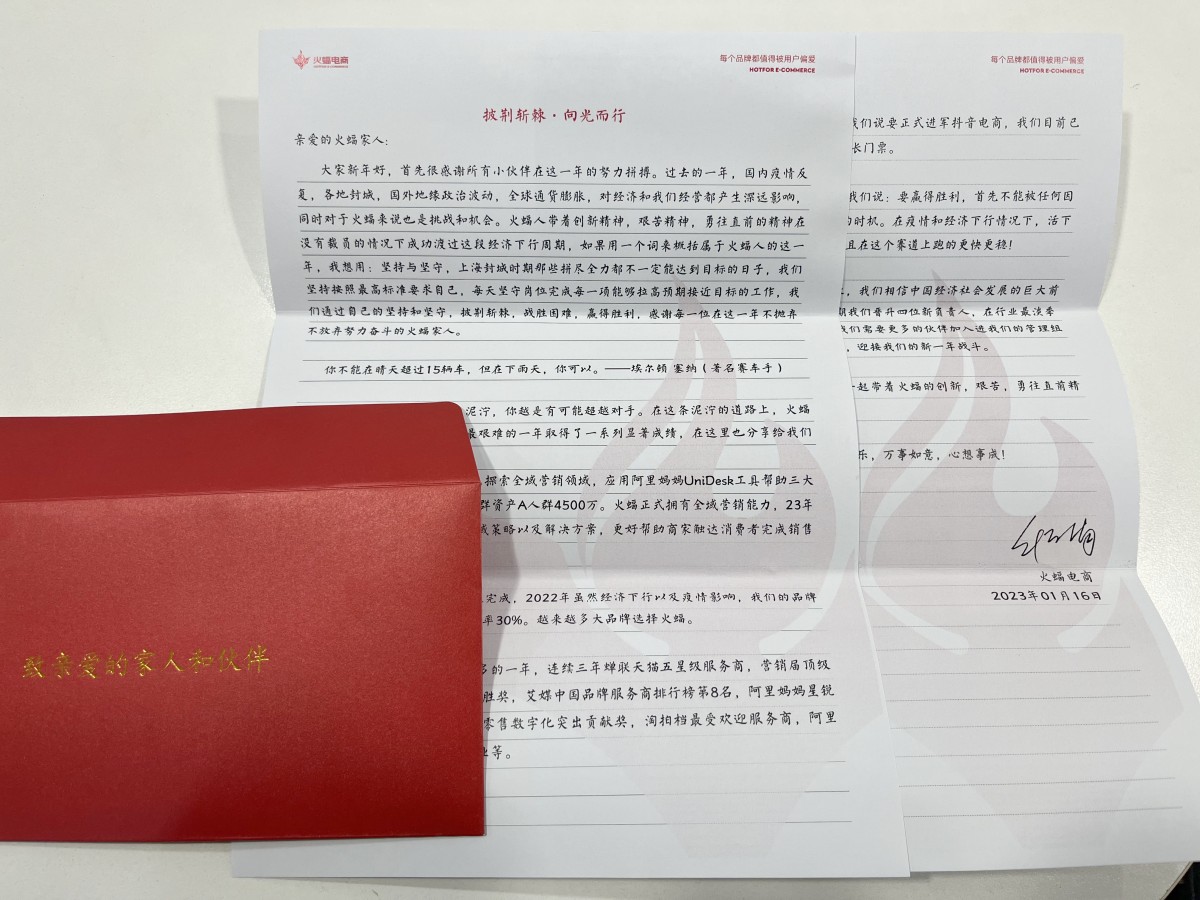 火蝠电商
每个品牌都值得被用户偏爱
HOTFOR E-COMMERCE
披荆斩棘·向光而行
亲爱的火蝠家人：
大家新年好，首先很感谢所有小伙伴在这一年的努力拼搏。过去的一年，国内疫情反
复，各地封城，国外地缘政治波动，全球通货膨胀，对经济和我们经营都产生深远影响，
同时对于火蝠来说也是挑战和机会。火蝠人带着创新精神，艰苦精神，勇往直前的精神在
没有裁员的情况下成功渡过这段经济下行周期，如果用一个词来概括属于火蝠人的这一
年，我想用：坚持与坚守，上海封城时期那些拼尽全力都不一定能达到目标的日子，我们
坚持按照最高标准要求自己，每天坚守岗位完成每一项能够拉高预期接近目标的工作，我
们通过自己的坚持和坚守，披荆斩棘，战胜困难，赢得胜利，感谢每一位在这一年不抛弃
不放弃努力奋斗的火蝠家人。
你不能在晴天超过15辆车，但在下雨天，你可以。——埃尔顿 塞纳（著名赛车手）
泥泞，你越是有可能超越对手。在这条泥泞的道路上，火蝠
最艰难的一年取得了一系列显著成绩，在这里也分享给我们
探索全域营销领域，应用阿里妈妈UniDesk工具帮助三大
群资产A人群4500万。火蝠正式拥有全域营销能力，23年
策略以及解决方案，更好帮助商家触达消费者完成销售
完成，2022年虽然经济下行以及疫情影响，我们的品牌
率30%。越来越多大品牌选择火蝠。
的一年，连续三年蝉联天猫五星级服务商，营销届顶级
胜奖，艾媒中国品牌服务商排行榜第8名，阿里妈妈星锐
零售数字化突出贡献奖，淘拍档最受欢迎服务商，阿里
等。
每个品牌都值得被用户偏爱
HOTFOR E-COMMERCE
我们说要正式进军抖音电商，我们目前已
长门票。
我们说：要赢得胜利，首先不能被任何因
的时机。在疫情和经济下行情况下，活下
且在这个赛道上跑的更快更稳！
，我们相信中国经济社会发展的巨大前
期我们晋升四位新负责人，在行业最淡季
我们需要更多的伙伴加入进我们的管理组
，迎接我们的新一年战斗。
一起带着火蝠的创新，艰苦，勇往直前精
乐，万事如意，心想事成！
火蝠电商
2023年01月16日
致亲爱的家人和伙伴